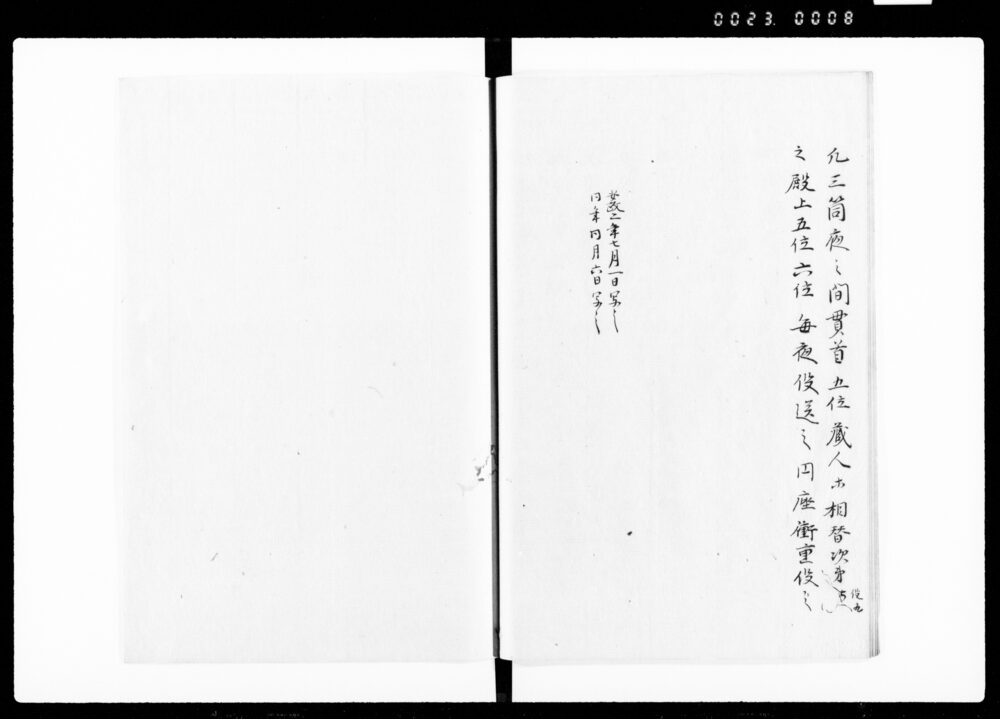 0023. 0008
凡三箇夜之間貫首五位蔵人等相替次第
之殿上五位六位毎夜役送之円座衝重役之
安政二年七月一日写之
同年同月六日写之